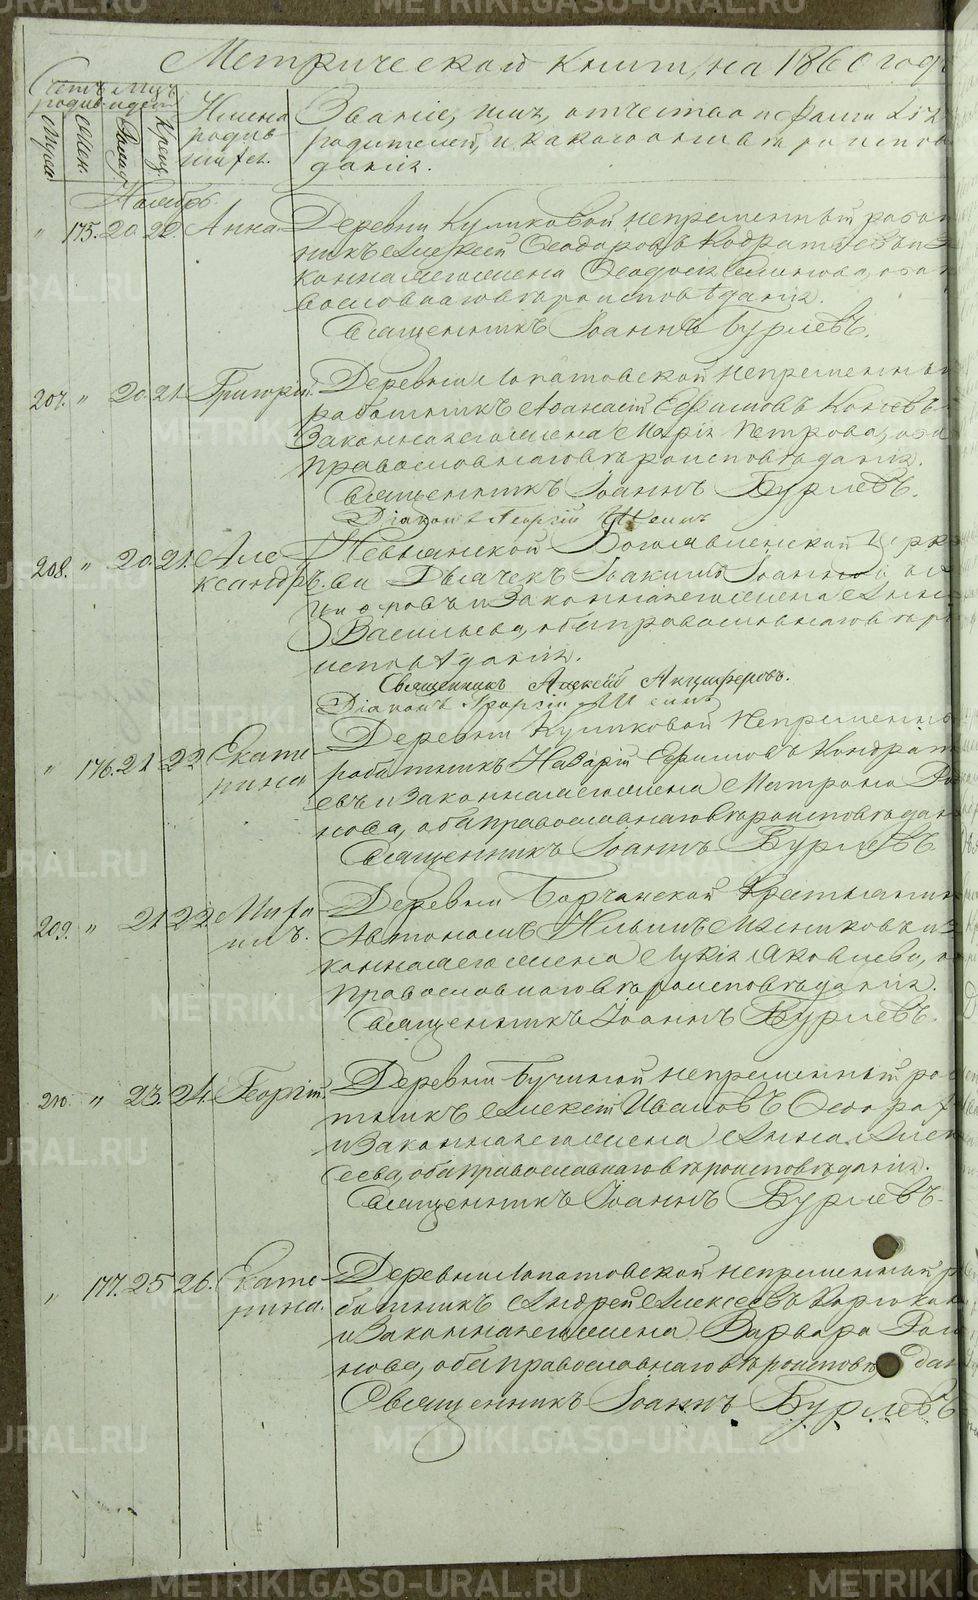 Метрической книги, на 1860 годъ
Счетъ родив. Мужес. Женс.
Мцъ и дни Рожд. Крещ.
Имена родившихся.
Званіе, имя, отчество и фамилія
родителей, и какого они вѣроиспо
данія.
Ноябрь
" 175. 20. 22. Анна Деревни Куликовой непременный работ
никъ Алексей Феодоровъ Кодратьевъ и за
конная его жена Феодосія Семинова, оба п
вославнаго вѣроисповѣданія.
Священникъ Іоаннъ Бурлевъ.
207. " 20. 21. Григорій. Деревни Лопатовской непременный
работникъ Афанасій Ефимовъ Коневъ
Законная его жена Марія Петрова, оба
православнаго вѣроисповѣданія.
Священникъ Іоаннъ Бурлевъ.
Діаконъ Георгій
208. " 20. 21. Але Невьянской Богоявленской Церк
ксандръ. ви Дьячекъ Іоакимъ Іоанновъ
и Законная его жена Анна
Васильева, оба православнаго вѣро
исповѣданія.
Священникъ Алексѣй Анциферовъ.
Діаконъ Георгій
" 176. 21. 22. Екате Деревни Куликовой Непременный
рина работникъ Назарій Ефимовъ Кондрать
евъ и Законная его жена Матрона
нова, оба православнаго вѣроисповѣдан
Священникъ Іоаннъ Бурлевъ
209. " 21. 22. Миха Деревни Борчанской Крестьянин
илъ. Автономъ Ильинъ Мѣниковъ и За
конная его жена Лукія Яковлева, о
православнаго вѣроисповѣданія.
Священникъ Іоаннъ Бурлевъ.
210. " 23. 24. Георгій. Деревни Бучиной непременный ро
тникъ Алексей Ивановъ
и Законная его жена Анна Алек
сеева, оба православнаго вѣроисповѣданія.
Священникъ Іоаннъ Бурлевъ.
" 177. 25. 26. Екате Деревни Лопатовской непременный р
рина. ботникъ Андрей Алексеевъ
и Законная его жена Варвара Рома
нова, оба православнаго вѣроисповѣдан
Священникъ Іоаннъ Бурлевъ
METRIKI.GASO-URAL.RU